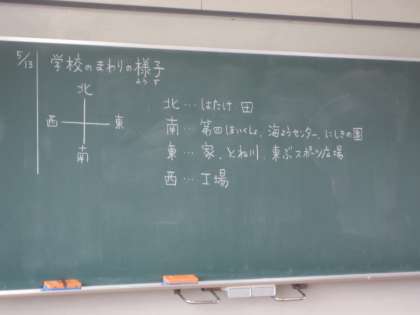 5/13
学校のまわりの様子
ようす
北
西 東
南
北…はたけ 田
南…第四ほいくしょ、海ようセンター、にしきの園
東…家、とね川、東ぶスポーツ広場
西…工場